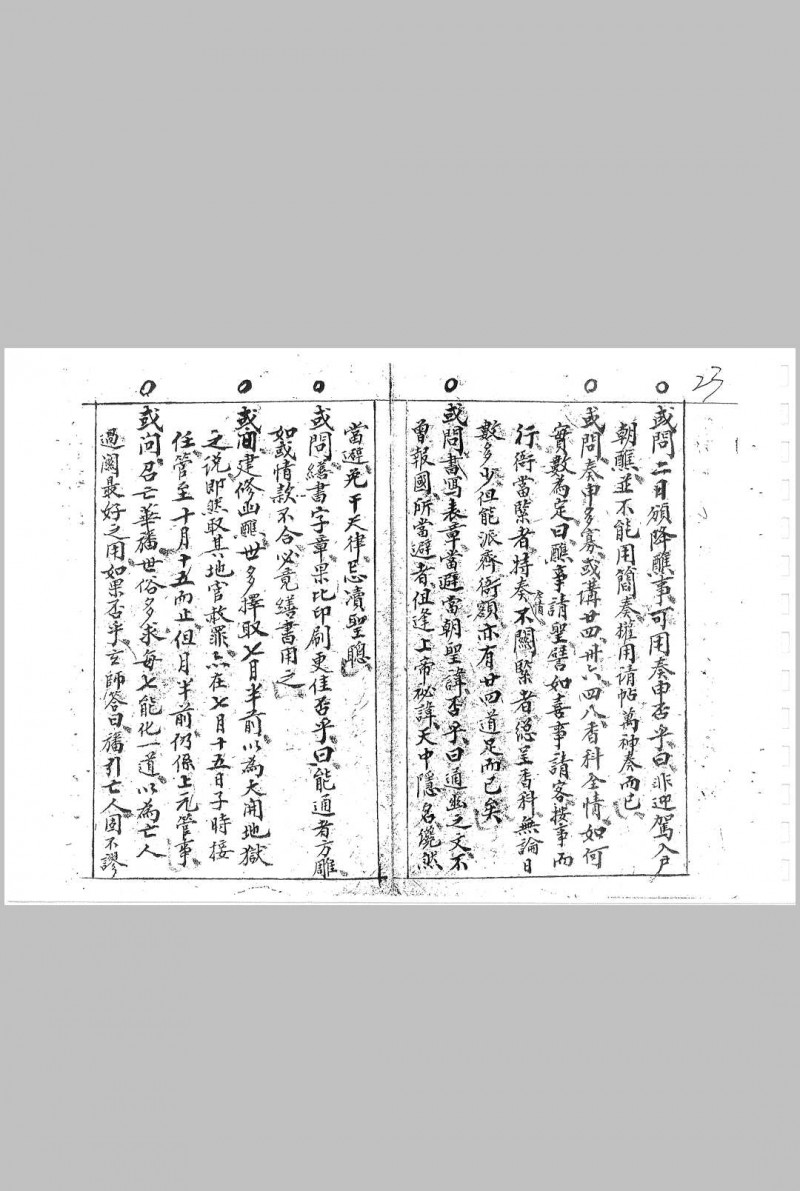 23
或問二日頒降醮事可用奏申否乎曰非迎駕入戶
朝醮並不能用簡奏權用請帖萬神奏而已
或問奏申多寡或講廿四卅六四八香科全情如何
實數為定曰醮事請聖譬如喜事請客按事而
行衙當緊者特奏不關緊者總呈香科無論日
數多少但能派齊衙額亦有廿四道足而已矣
或問書寫表章當避當朝聖諱否乎曰通幽之文不
曾報國所當避者但逢上帝祕諱天中隱名儼然
當避免干天律忌瀆聖聰
或問繕書字章果比印刷更佳否乎曰能通者方雕
如或情款不合必竟繕書用之
或問建修幽醮世多擇取七月半前以為大開地獄
之說即然取其地官赦罪亦在七月十五日子時接
任管至十月十五而止但月半前仍係上元管事
或问召亡華旛世俗多求每七能化一道以為亡人
過關最好之用如果否乎玄師答曰旛引亡人固不謬